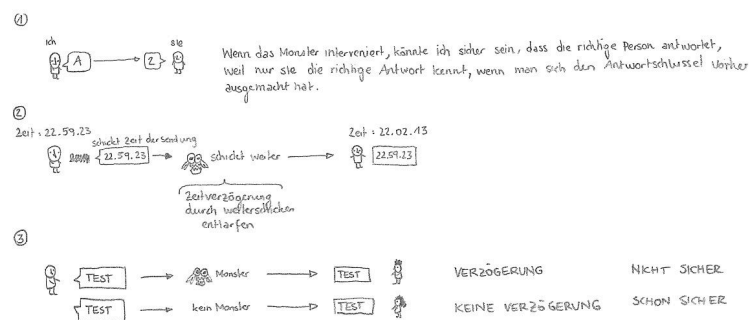 ①
ich sie
A 2
Wenn das Monster interveniert, könnte ich sicher sein, dass die richtige Person antwortet,
weil nur sie die richtige Antwort kennt, wenn man sich den Antwortschlüssel vorher
ausgemacht hat.
②
Zeit: 22.59.23 Zeit: 22.02.13
schickt Zeit der Sendung
22.59.23 schickt weiter 22.59.23
Zeitverzögerung
durch weiterschicken
entlarfen
③
TEST Monster TEST VERZÖGERUNG NICHT SICHER
TEST kein Monster TEST KEINE VERZÖGERUNG SCHON SICHER